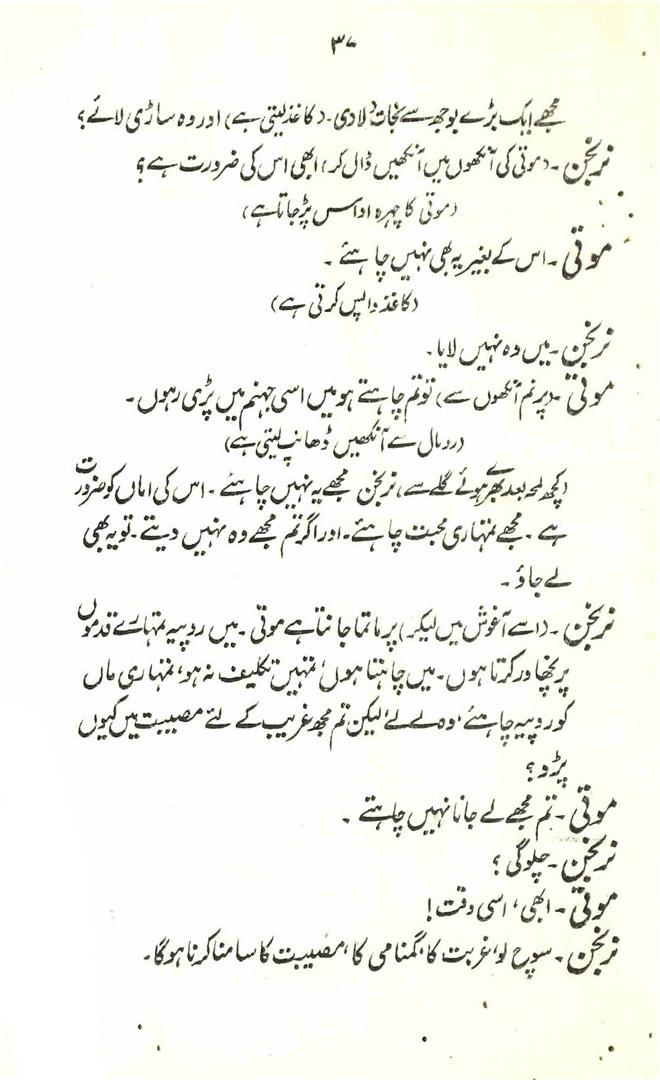 ۳۷
مجھے ایک بڑے بوجھ سے نجات دلا دی۔ (کاغذ لیتی ہے) اور وہ ساڑی لائے؟
نرنجن۔ (موتی کی آنکھوں میں آنکھیں ڈال کر) ابھی اس کی ضرورت ہے؟
(موتی کا چہرہ اداس پڑ جاتا ہے)
موتی۔ اس کے بغیر یہ بھی نہیں چاہئے۔
(کاغذ واپس کرتی ہے)
نرنجن۔ میں وہ نہیں لایا۔
موتی۔ (پرنم آنکھوں سے) تو تم چاہتے ہو میں اسی جہنم میں پڑی رہوں۔
(رومال سے آنکھیں ڈھانپ لیتی ہے)
(کچھ لمحہ بعد بھرے ہوئے گلے سے) نرنجن مجھے یہ نہیں چاہئے۔ اس کی اماں کو ضرورت
ہے۔ مجھے تمہاری محبت چاہئے۔ اور اگر تم مجھے وہ نہیں دیتے۔ تو یہ بھی
لے جاؤ۔
نرنجن۔ (اسے آغوش میں لیکر) پرماتما جانتا ہے موتی۔ میں روپیہ تمہارے قدموں
پر نچھاور کرتا ہوں۔ میں چاہتا ہوں، تمہیں تکلیف نہ ہو، تمہاری ماں
کو روپیہ چاہئے، وہ لے لے، لیکن تم مجھ غریب کے لئے مصیبت میں کیوں
پڑو؟
موتی۔ تم مجھے لے جانا نہیں چاہتے۔
نرنجن۔ چلوگی؟
موتی۔ ابھی، اسی وقت!
نرنجن۔ سوچ لو، غربت کا، گمنامی کا، مصیبت کا سامنا کرنا ہوگا۔